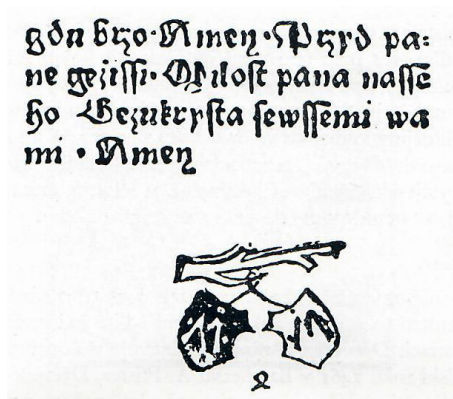 gdu brzo·Amen·Przyd pa=
ne gezissi·Milost pana nasse
ho Gezukrysta sewssemi wa
mi · Amen
2